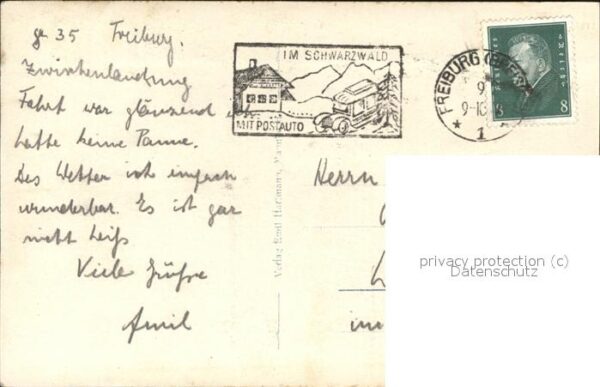 35 Freiburg.
Zwischenlandung
Fahrt war glänzend
hatte keine Panne.
Das Wetter ist einfach
wunderbar. Es ist gar
nicht heiß
Viele Grüße
Emil
IM SCHWARZWALD
MIT POSTAUTO
FREIBURG (BREISG
9
9-10
* 1 *
8 8
Verlag Emil Hartmann, Mann
Herrn
privacy protection (c)
Datenschutz